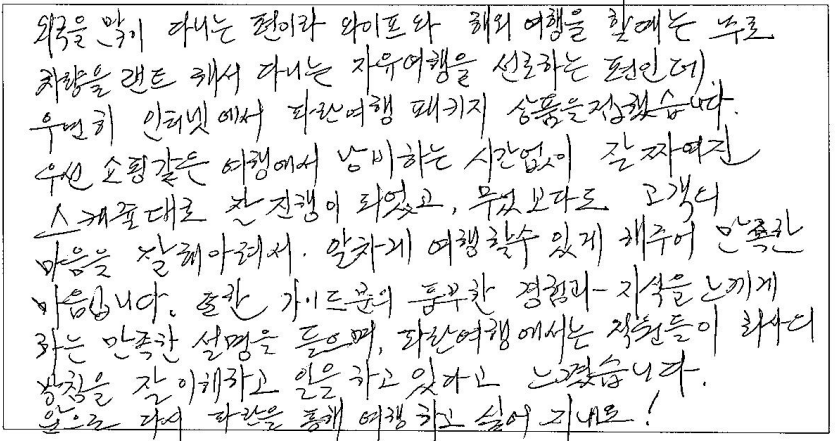 외국을 많이 다니는 편이라 와이프와 해외 여행을 할때는 주로
차량을 랜트 해서 다니는 자유여행을 선호하는 편인데
우연히 인터넷에서 파란여행 패키지 상품을 접했습니다.
우선 쇼핑같은 여행에서 낭비하는 시간없이 잘 짜여진
스케쥴대로 잘 진행이 되었고, 무엇보다도 고객의
마음을 잘 헤아려서. 알차게 여행할수 있게 해주어 만족한
마음입니다. 또한 가이드분의 풍부한 경험과 지식을 느끼게
하는 만족한 설명을 들으며, 파란여행에서는 직원들이 회사의
방침을 잘 이해하고 일을 하고 있다고 느꼈습니다.
앞으로 다시 파란을 통해 여행 하고 싶어 지네요!